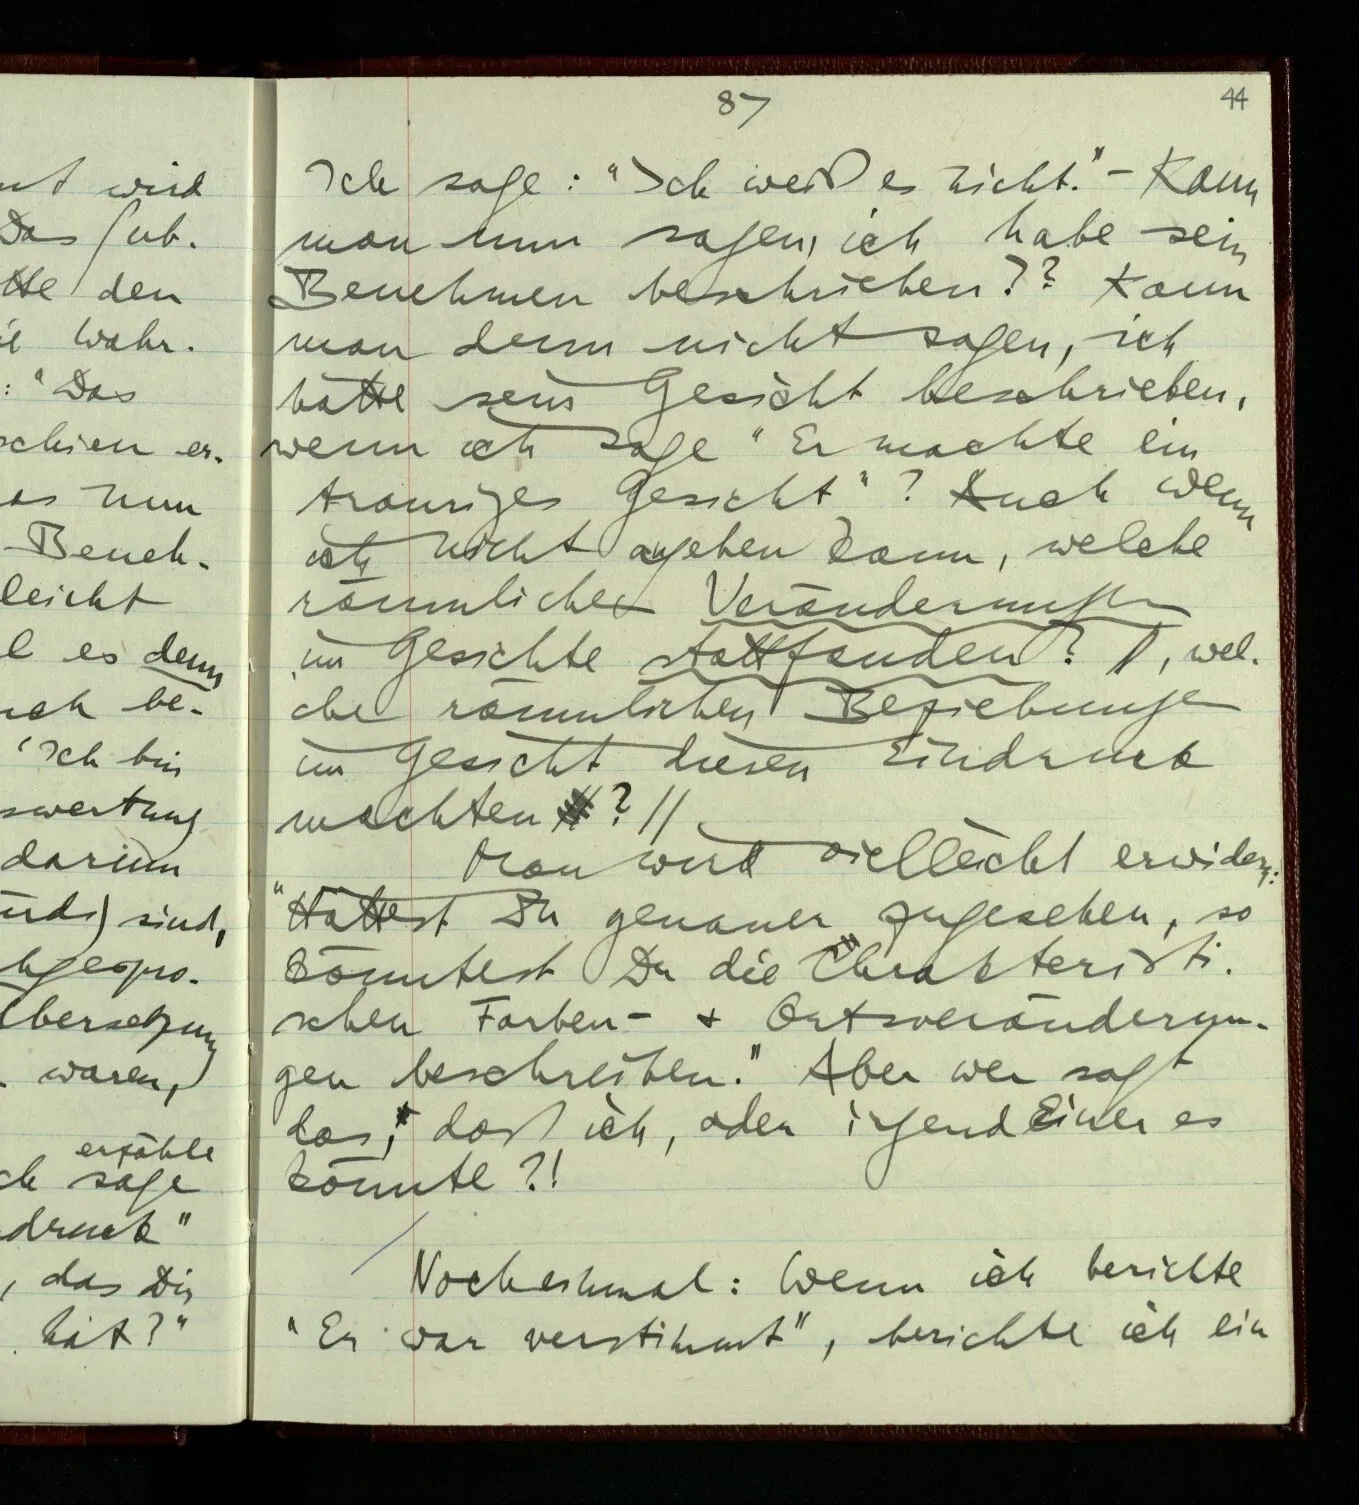 87
44
Ich sage: "Ich weiß es nicht." – Kann
man nun sagen, ich habe sein
Benehmen beschrieben?? Kann
man denn nicht sagen, ich
hätte sein Gesicht beschrieben,
wenn ich sage "Er machte ein
trauriges Gesicht"? Auch wenn
ich nicht angeben kann, welche
räumlichen Veränderungen
im Gesichte stattfanden? //, wel-
che räumlichen Beziehungen
im Gesicht diesen Eindruck
machten? //
Man wird vielleicht erwidern:
"Hättest Du genauer zugesehen, so
könntest Du die Charakteristi-
schen Farben- & Ortsveränderun-
gen beschreiben." Aber wer sagt
das, daß ich, oder irgend Einer es
könnte?!
Nocheinmal: Wenn ich berichte
"Er war verstimmt", berichte ich ein
wird
Das Sub-
den
Wahr-
: "Das
schien er-
nun
Beneh-
leicht
es denn
be-
"Ich bin
darum
sind,
Übersetzung
waren,
erzähle
sage
druck"
, das Dir
hat?"